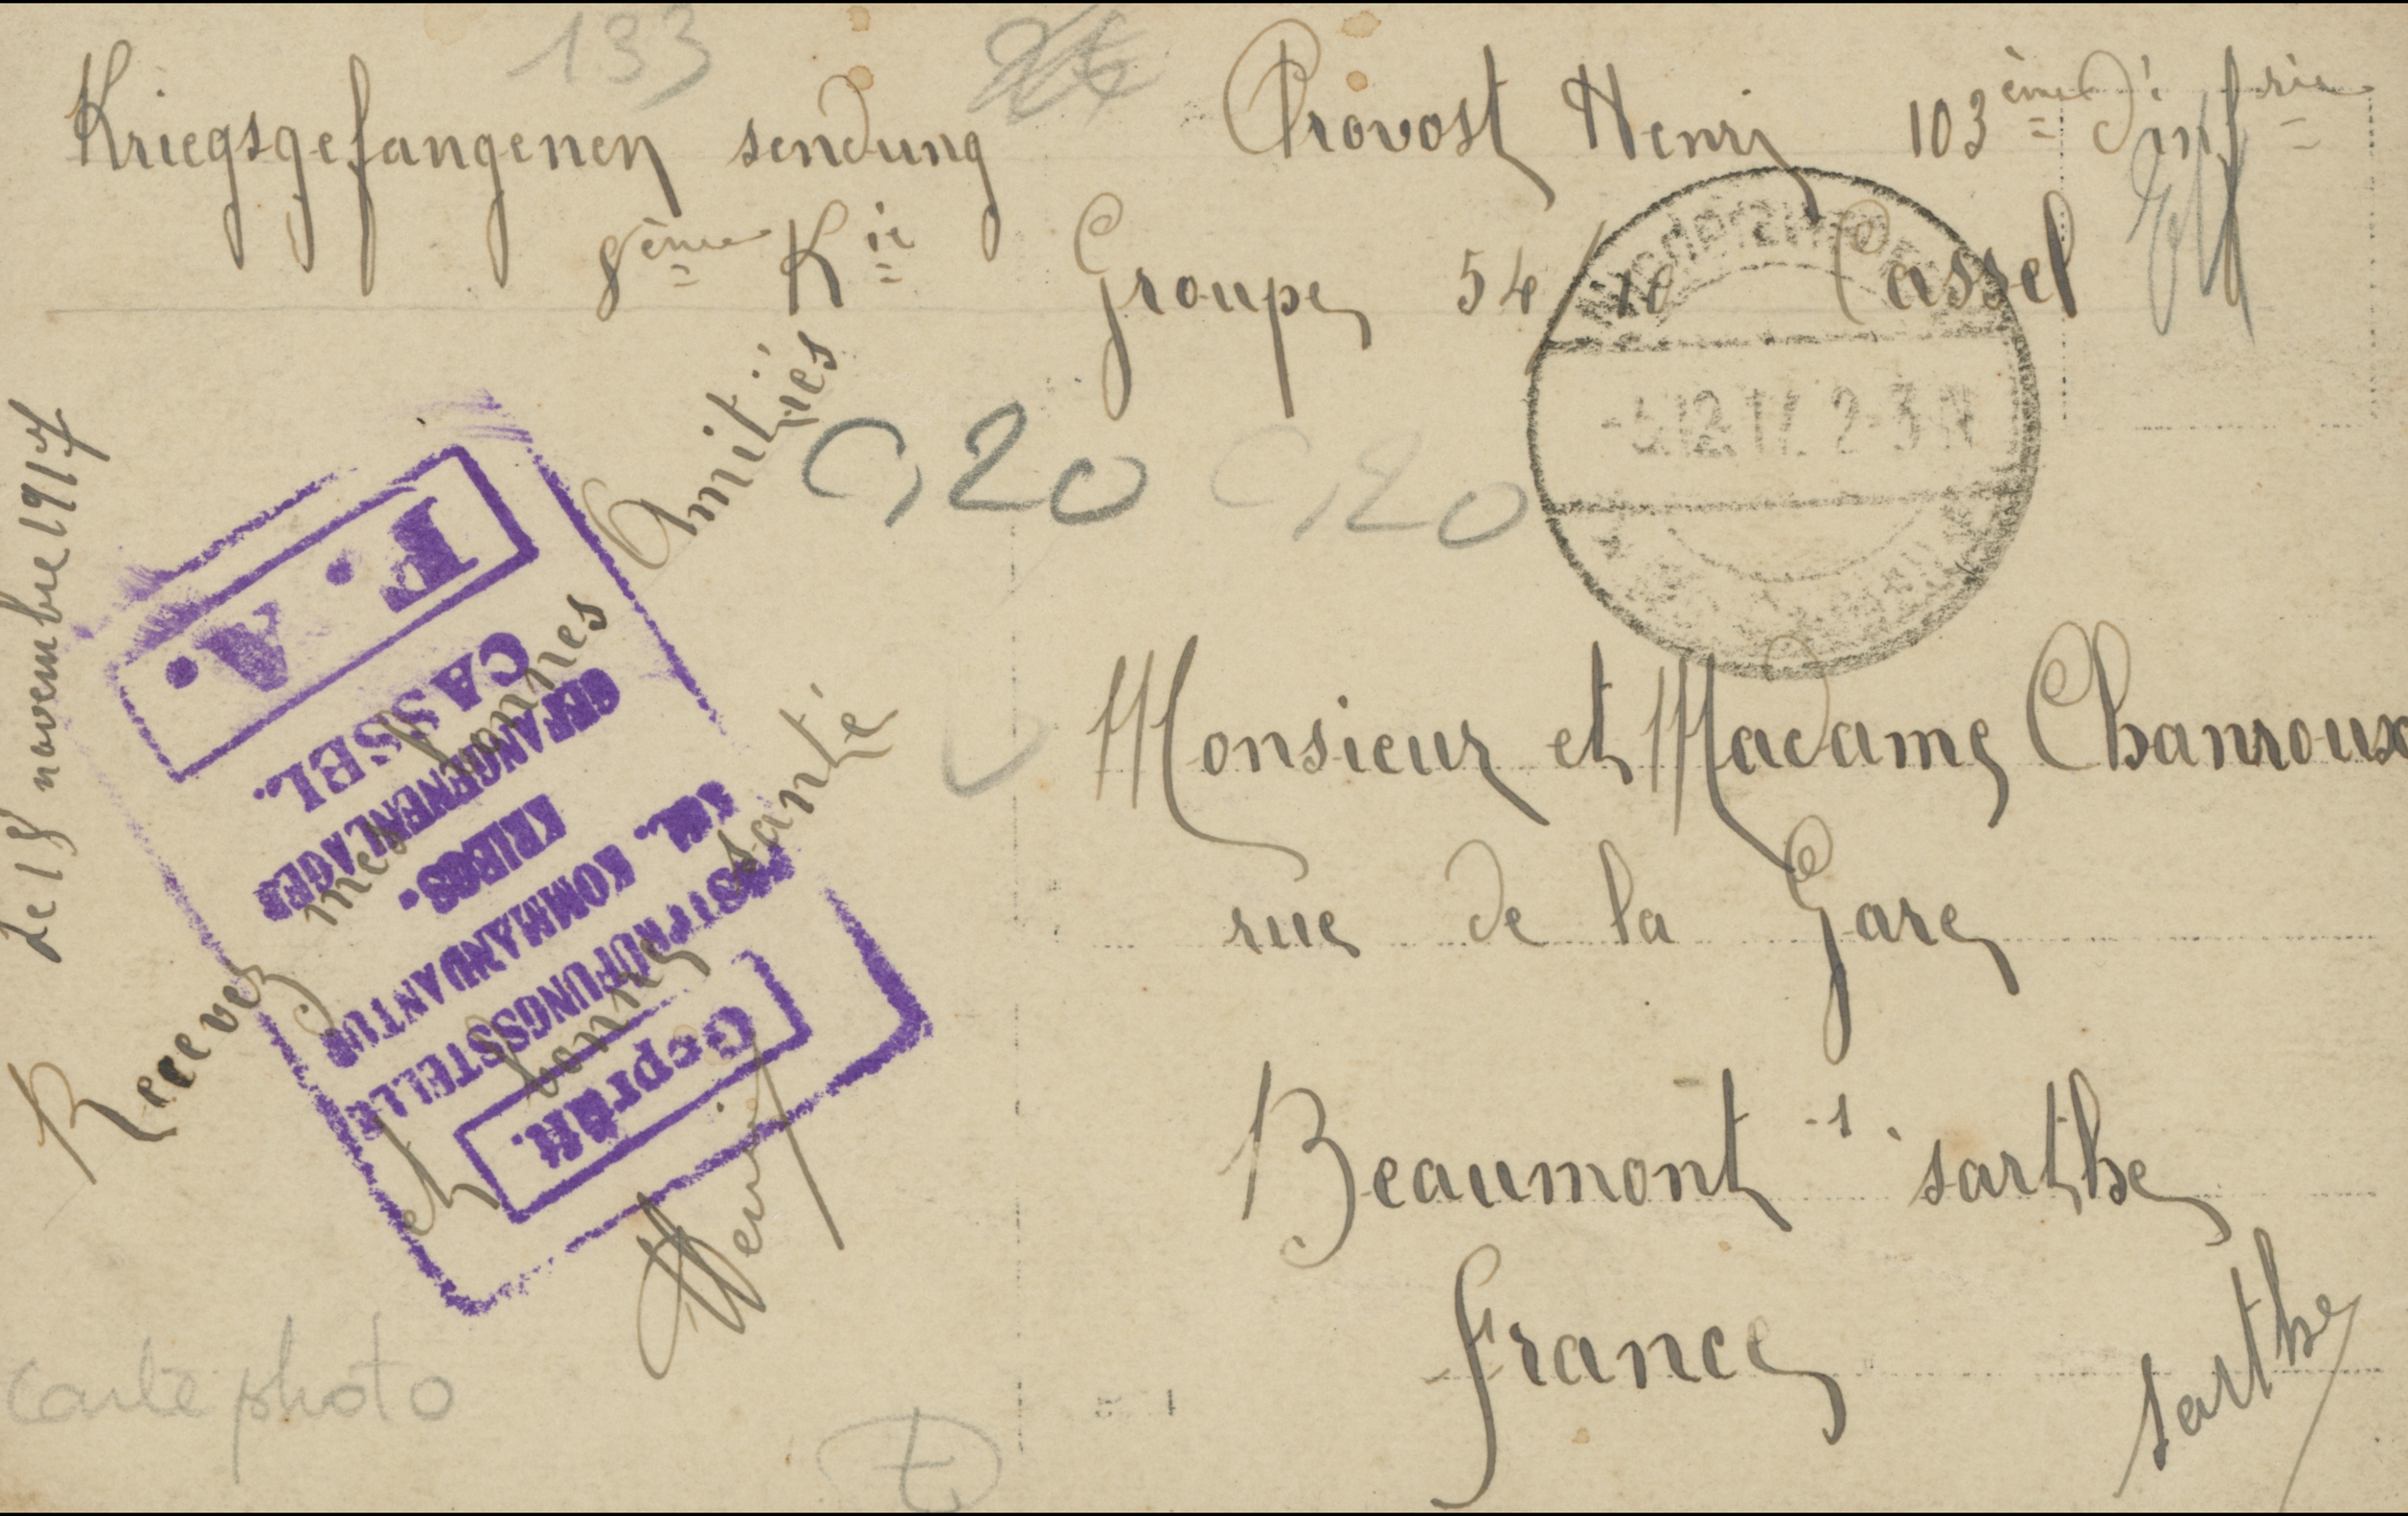 133
Kriegsgefangenen sendung Provost Henri 103ème d'infrie
8ème Kie Groupe 54 / 10 Cassel
Niederzwehren
-5.12.17. 2-3 N
0,20 0,20
le 18 novembre 1917
Recevez mes bonnes Amitiés
et bonne santé
Henri
Monsieur et Madame Chanroux
rue de la Gare
Beaumont -s. sarthe
France
sarthe
F. A.
CASSEL.
GEFANGENENLAGER
KRIEGS-
KOMMANDANTUR
POSTPRÜFUNGSSTELLE
Geprüft.
carte photo